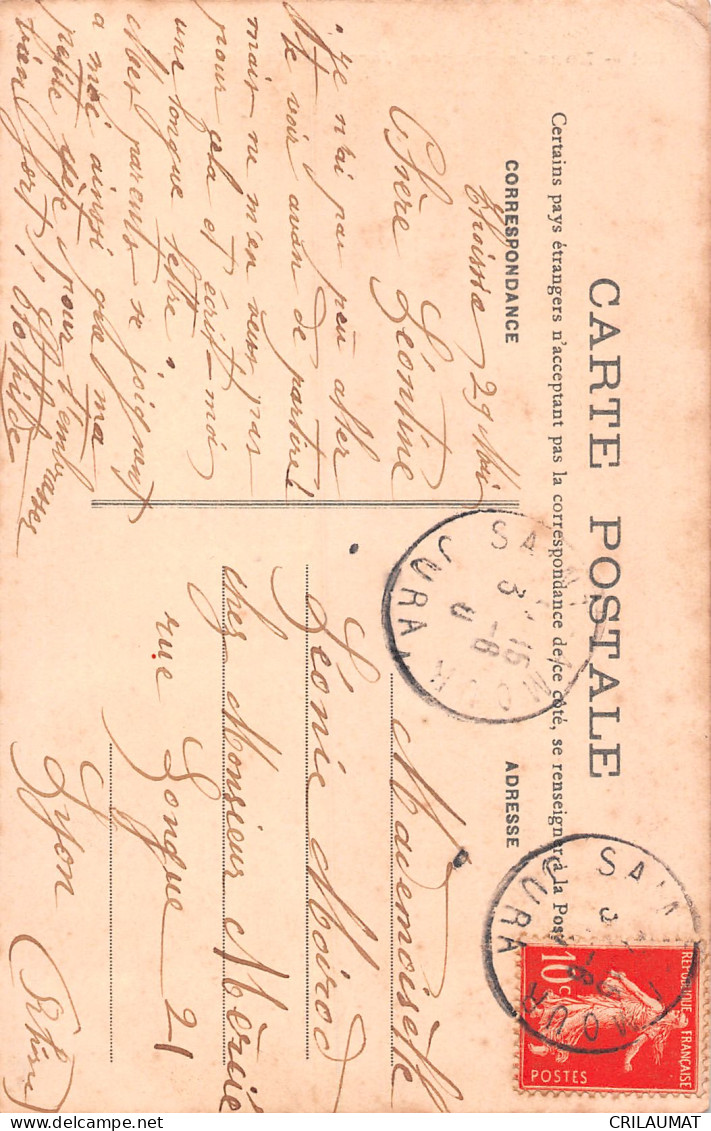 CARTE POSTALE
Certains pays étrangers n'acceptant pas la correspondance de ce côté, se renseigner à la Poste
CORRESPONDANCE
ADRESSE
29 Mai
Chère Léontine
Je n'ai pas peu aller
te voir avan de partire!
mais ne m'en veus pas
pour cela et écrit-moi
une longue lettre.
Mes parents se joignant
a moi ainsi que ma
petite pour t'embrasser
bien fort!
Mademoiselle
Léonie Moirod
chez Monsieur
rue Longue 21
Lyon (Rhône)
SAINT AMOUR
JURA
SAINT AMOUR
JURA
RÉPUBLIQUE FRANÇAISE
10c
POSTES
CRILAUMAT